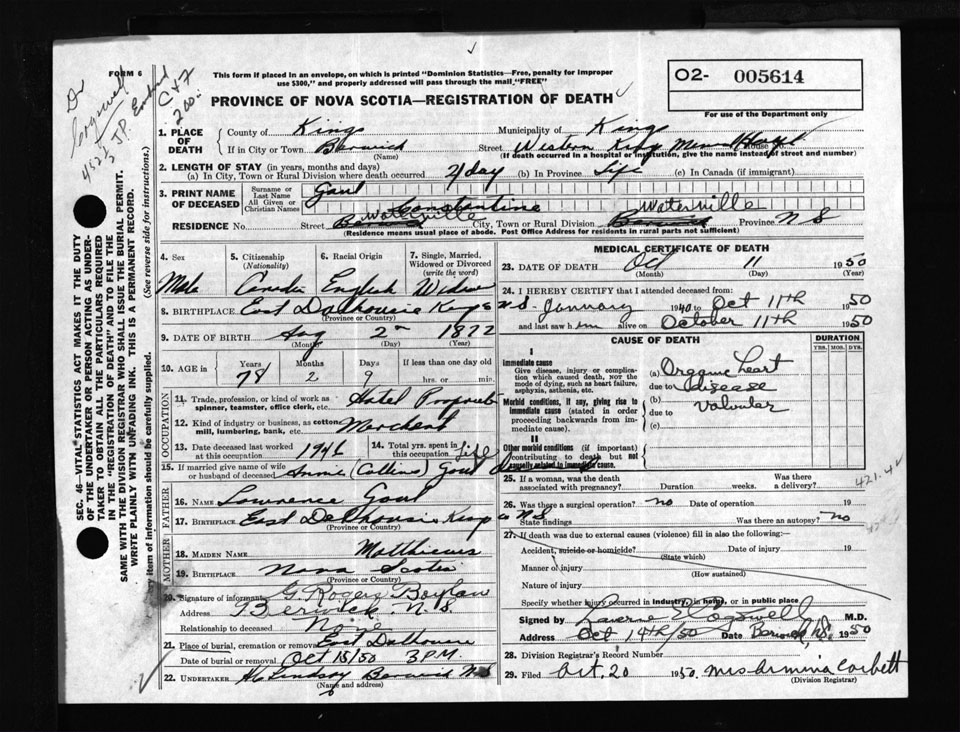 FORM 6
This form if placed in an envelope, on which is printed "Dominion Statistics—Free, penalty for improper
use $300," and properly addressed will pass through the mail "FREE"
O2- 005614
For use of the Department only
PROVINCE OF NOVA SCOTIA—REGISTRATION OF DEATH
Dr
Cogswell
JP
1. PLACE OF DEATH County of Kings Municipality of Kings
If in City or Town Berwick (Name) Street Western Kings Mem Hospt House No
(If death occurred in a hospital or institution, give the name instead of street and number)
2. LENGTH OF STAY (in years, months and days)
(a) In City, Town or Rural Division where death occurred day (b) In Province Life (c) In Canada (if immigrant)
3. PRINT NAME OF DECEASED Surname or Last Name Gaul
All Given or Christian Names Constantine
RESIDENCE No. Street Waterville City, Town or Rural Division Waterville Province N S
(Residence means usual place of abode. Post Office Address for residents in rural parts not sufficient)
4. Sex 5. Citizenship (Nationality) 6. Racial Origin 7. Single, Married, Widowed or Divorced (write the word)
Male Canadian English Widow
8. BIRTHPLACE East Dalhousie Kings N S.
(Province or Country)
9. DATE OF BIRTH Aug 2 1872
(Month) (Day) (Year)
10. AGE in Years Months Days If less than one day old
78 2 9 hrs. or min.
OCCUPATION
11. Trade, profession, or kind of work as spinner, teamster, office clerk, etc. Hotel Proprietor
12. Kind of industry or business, as cotton mill, lumbering, bank, etc. Merchant
13. Date deceased last worked at this occupation 1946 14. Total yrs. spent in this occupation Life
15. If married give name of wife or husband of deceased Annie (Collins) Gaul
FATHER
16. NAME Lawrence Gaul
17. BIRTHPLACE East Dalhousie Kings Co N S
(Province or Country)
MOTHER
18. MAIDEN NAME Matthieus
19. BIRTHPLACE Nova Scotia
(Province or Country)
20. Signature of informant G. Rogers Boylan
Address Berwick N. S.
Relationship to deceased None
21. Place of burial, cremation or removal East Dalhousie
Date of burial or removal Oct 15/50 3 P.M.
22. UNDERTAKER Lindsay Berwick N S
(Name and address)
MEDICAL CERTIFICATE OF DEATH
23. DATE OF DEATH Oct 11 1950
(Month) (Day) (Year)
24. I HEREBY CERTIFY that I attended deceased from:
January 1940 to Oct 11th 1950
and last saw him alive on October 11th 1950
CAUSE OF DEATH
DURATION
YRS. MOS. DYS.
I
Immediate cause
Give disease, injury or complication which caused death, NOT the mode of dying, such as heart failure, asphyxia, asthenia, etc.
(a) Organic heart
due to disease
Morbid conditions, if any, giving rise to immediate cause (stated in order proceeding backwards from immediate cause).
(b)
due to valvular
(c)
II
Other morbid conditions (if important) contributing to death but not causally related to immediate cause.
25. If a woman, was the death associated with pregnancy? Duration weeks. Was there a delivery?
421.4
26. Was there a surgical operation? no Date of operation 19
State findings Was there an autopsy? no
27. If death was due to external causes (violence) fill in also the following:—
Accident, suicide or homicide? (State which) Date of injury 19
Manner of injury
(How sustained)
Nature of injury
Specify whether injury occurred in industry, in home, or in public place
Signed by Cogswell M.D.
Address Oct 14th/50 Date Berwick, N.S. 1950
28. Division Registrar's Record Number
29. Filed Oct. 20 1950. Mrs Armina Corbett
(Division Registrar)
SEC. 46—VITAL STATISTICS ACT MAKES IT THE DUTY
OF THE UNDERTAKER OR PERSON ACTING AS UNDERTAKER
TO OBTAIN ALL THE PARTICULARS REQUIRED
IN THE "REGISTRATION OF DEATH" AND TO FILE THE
SAME WITH THE DIVISION REGISTRAR WHO SHALL ISSUE THE BURIAL PERMIT.
WRITE PLAINLY WITH UNFADING INK. THIS IS A PERMANENT RECORD.
item of information should be carefully supplied. (See reverse side for instructions.)